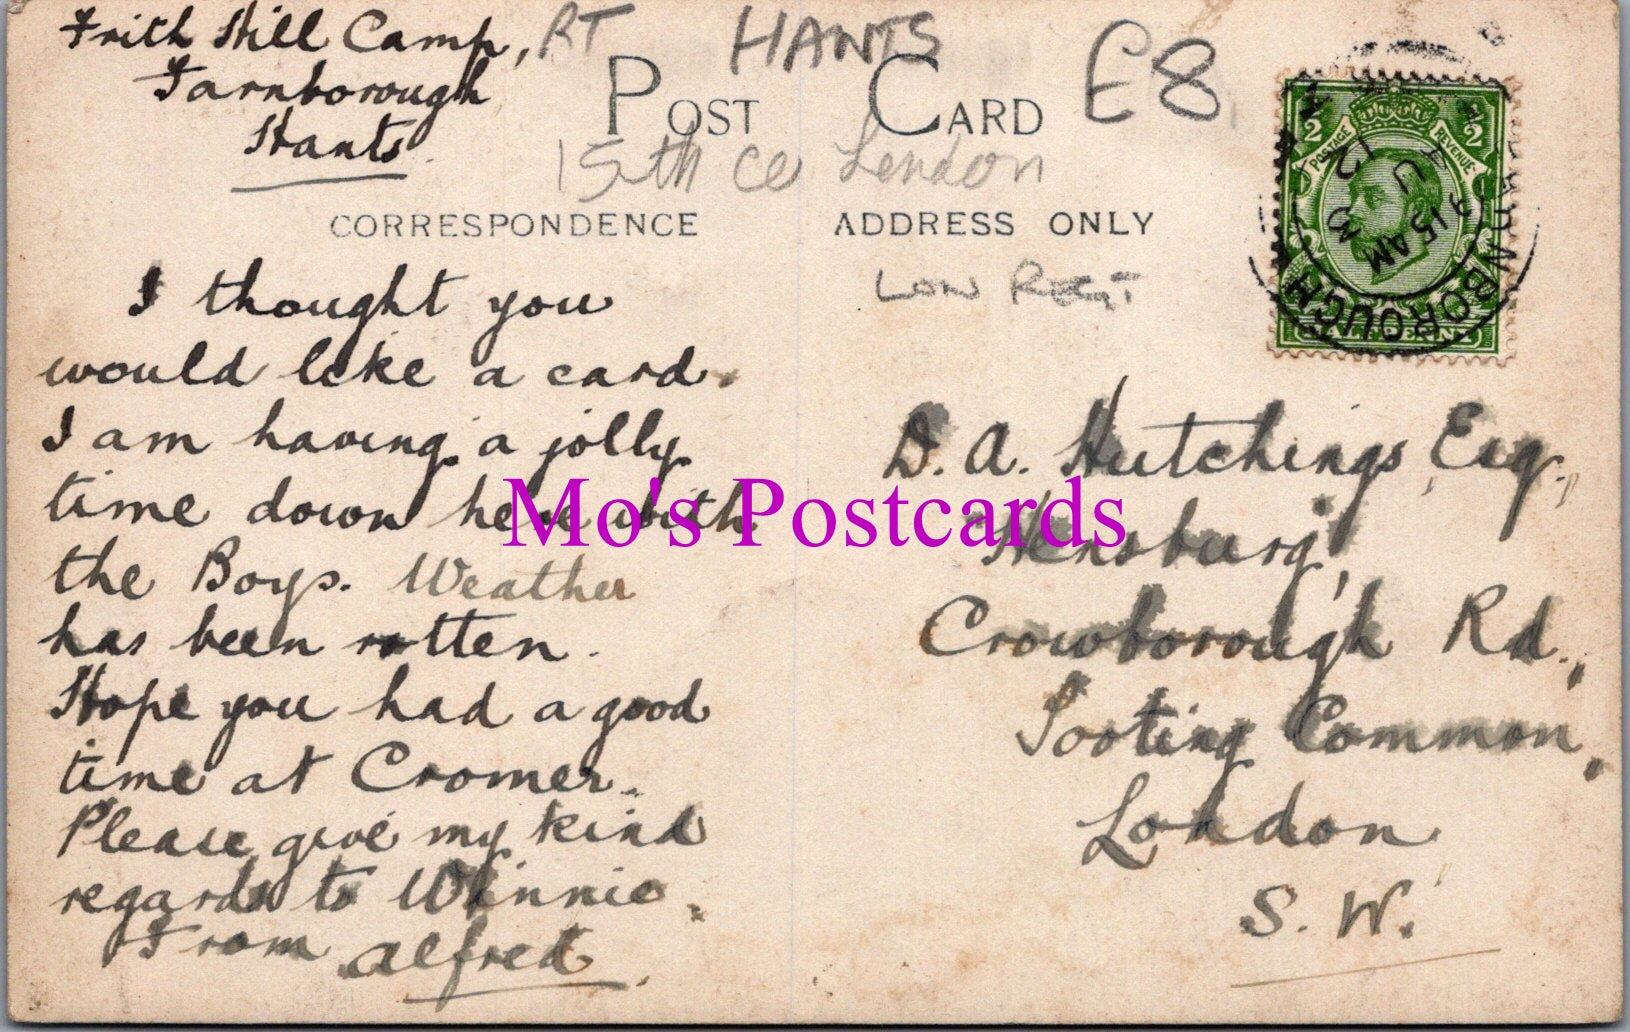 Frith Hill Camp,
Farnborough
Hants.
RT HANTS £8
POST CARD
15th London
CORRESPONDENCE
ADDRESS ONLY
I thought you
would like a card.
I am having a jolly
time down here with
the Boys. Weather
has been rotten.
Hope you had a good
time at Cromer.
Please give my kind
regards to Winnie.
From Alfred.
½ ½
POSTAGE REVENUE
HALFPENNY
FARNBOROUGH
9 15 AM
AU 3
12
D. A. Hutchings, Esq.,
Crowborough Rd.,
Tooting Common,
London
S. W.
Mo's Postcards